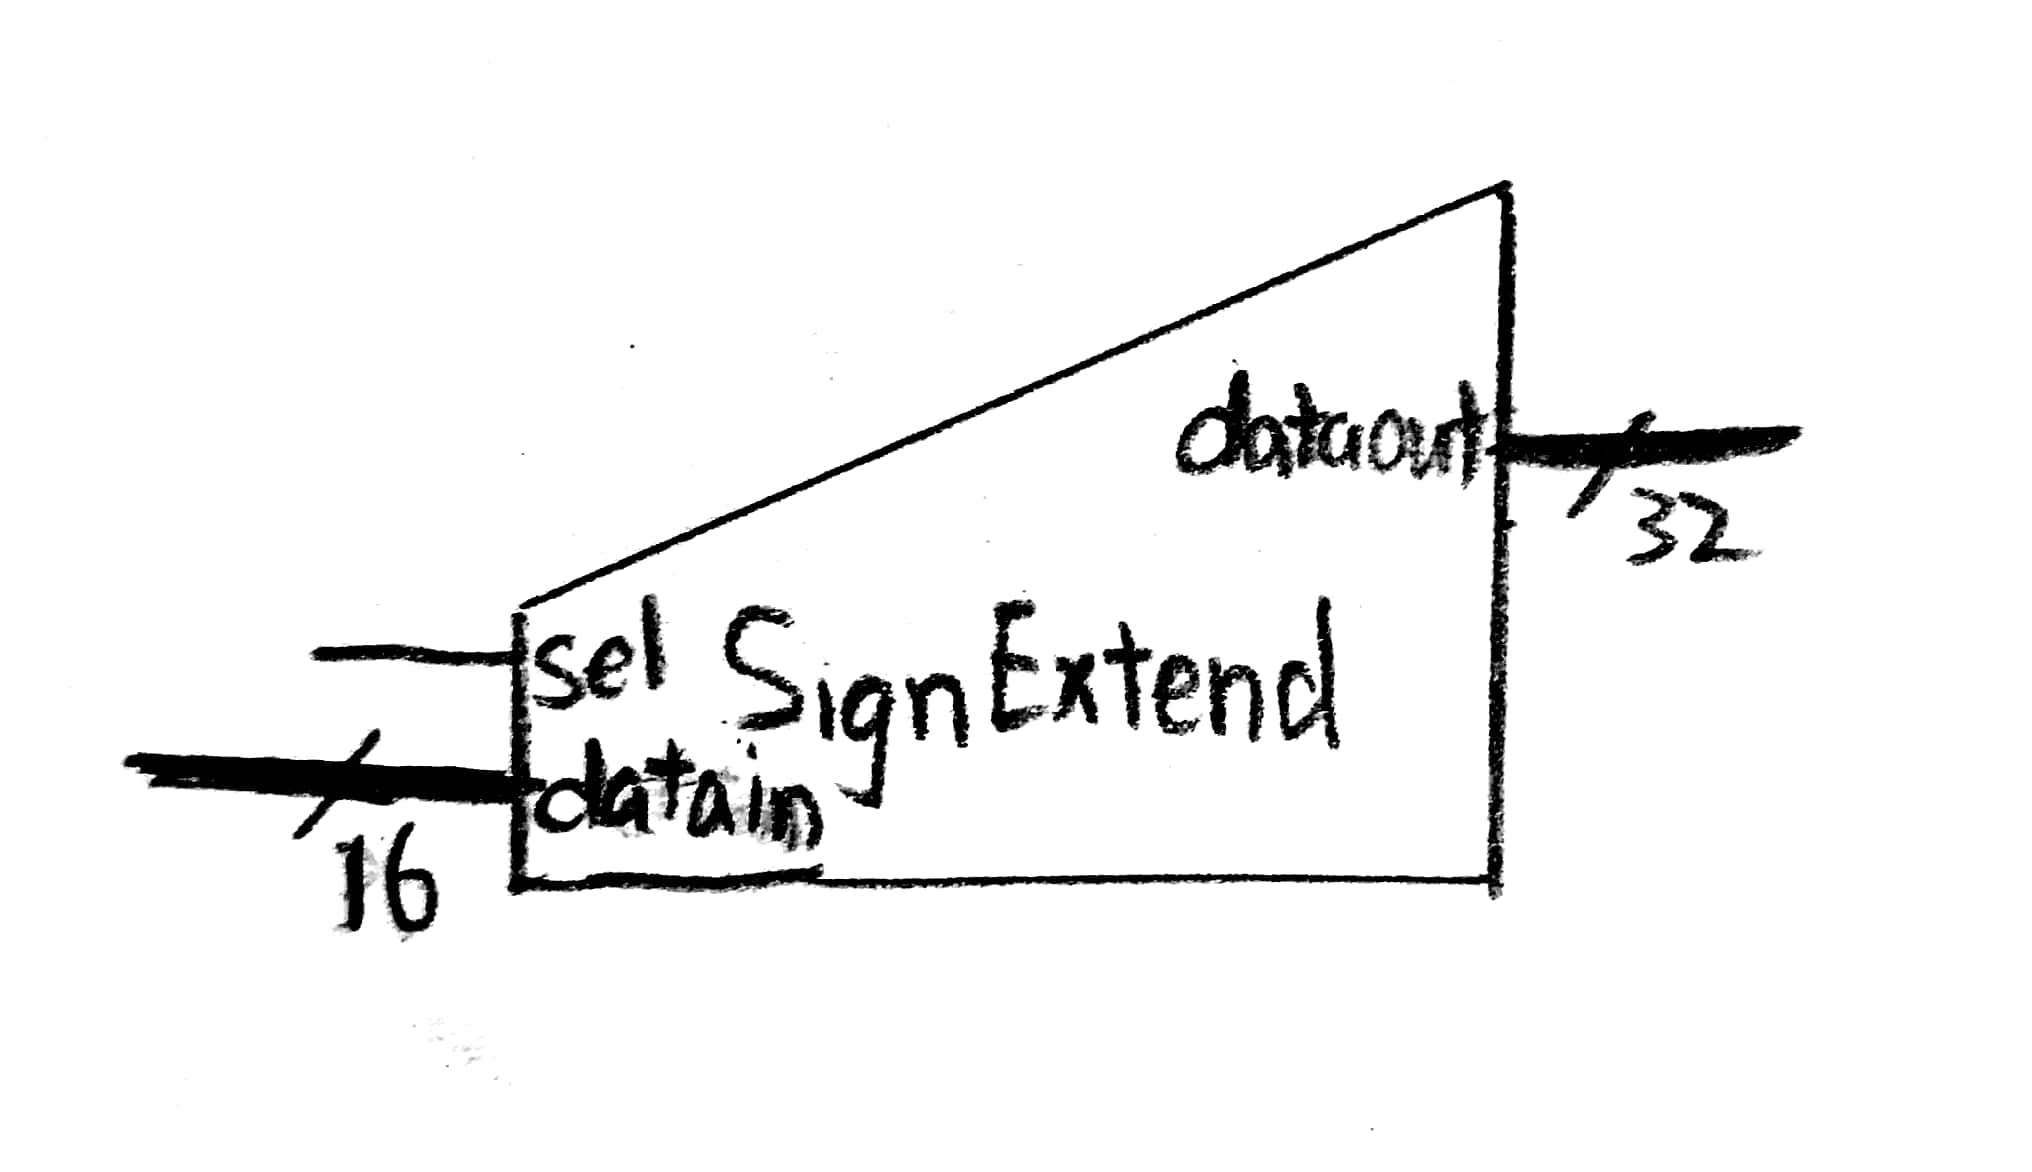 dataout
32
sel SignExtend
datain
16